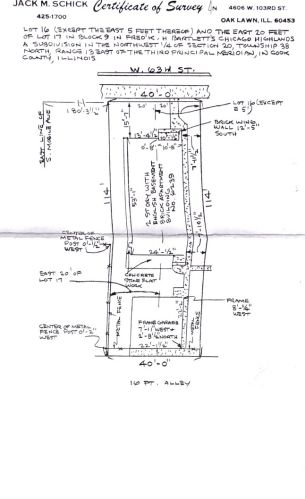 JACK M. SCHICK Certificate of Survey 4606 W. 103RD ST.
425-1700
OAK LAWN, ILL. 60453
LOT 16 (EXCEPT THE EAST 5 FEET THEREOF) AND THE EAST 20 FEET
OF LOT 17 IN BLOCK 9 IN FRED'K. H. BARTLETT'S CHICAGO HIGHLANDS
A SUBDIVISION IN THE NORTHWEST 1/4 OF SECTION 20, TOWNSHIP 38
NORTH, RANGE 13 EAST OF THE THIRD PRINCIPAL MERIDIAN, IN COOK
COUNTY, ILLINOIS
W. 63RD ST.
40'-0"
20' 20'
LOT 16 (EXCEPT
E 5')
EAST LINE OF
13'-4 1/2"
BRICK WING
WALL 12'-5"
SOUTH
114'
53'-1"
2 STORY WITH
ENGLISH BASEMENT
BRICK APARTMENT
BUILDING
NO. 6239
114'
CENTER OF
METAL FENCE
POST 0'-1 1/2"
WEST
24'-1/2"
EAST 20' OF
LOT 17
CONCRETE
FLAT
WORK
METAL FENCE
FRAME
WEST
CENTER OF METAL
FENCE POST 0'-2"
WEST
FRAME GARAGE
7'-11" WEST &
2'-8 1/2" NORTH
METAL
FENCE
22'-1/2"
40'-0"
16 FT. ALLEY